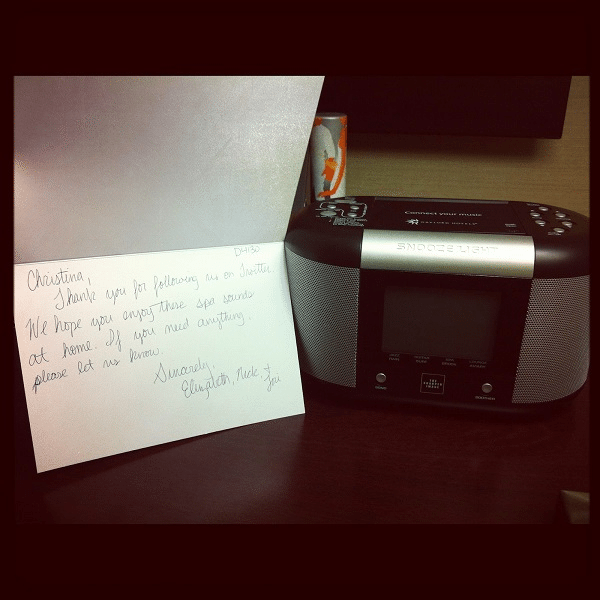 D4130
Christina,
Thank you for following us on Twitter.
We hope you enjoy these spa sounds
at home. If you need anything,
please let us know.
Sincerely,
Elizabeth, Nick, +
Connect your music
SNOOZE LIGHT